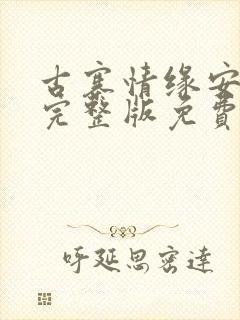 古寨情缘安
完整版免費
呼延思密達